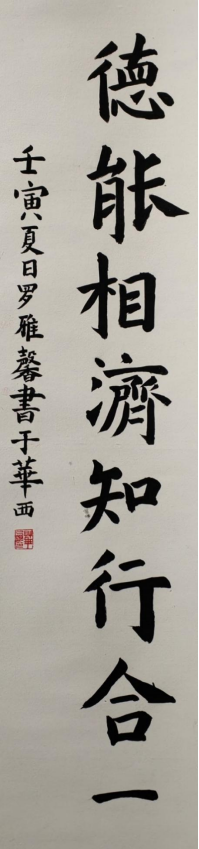 德能相濟知行合一
壬寅夏日罗雅馨書于華西